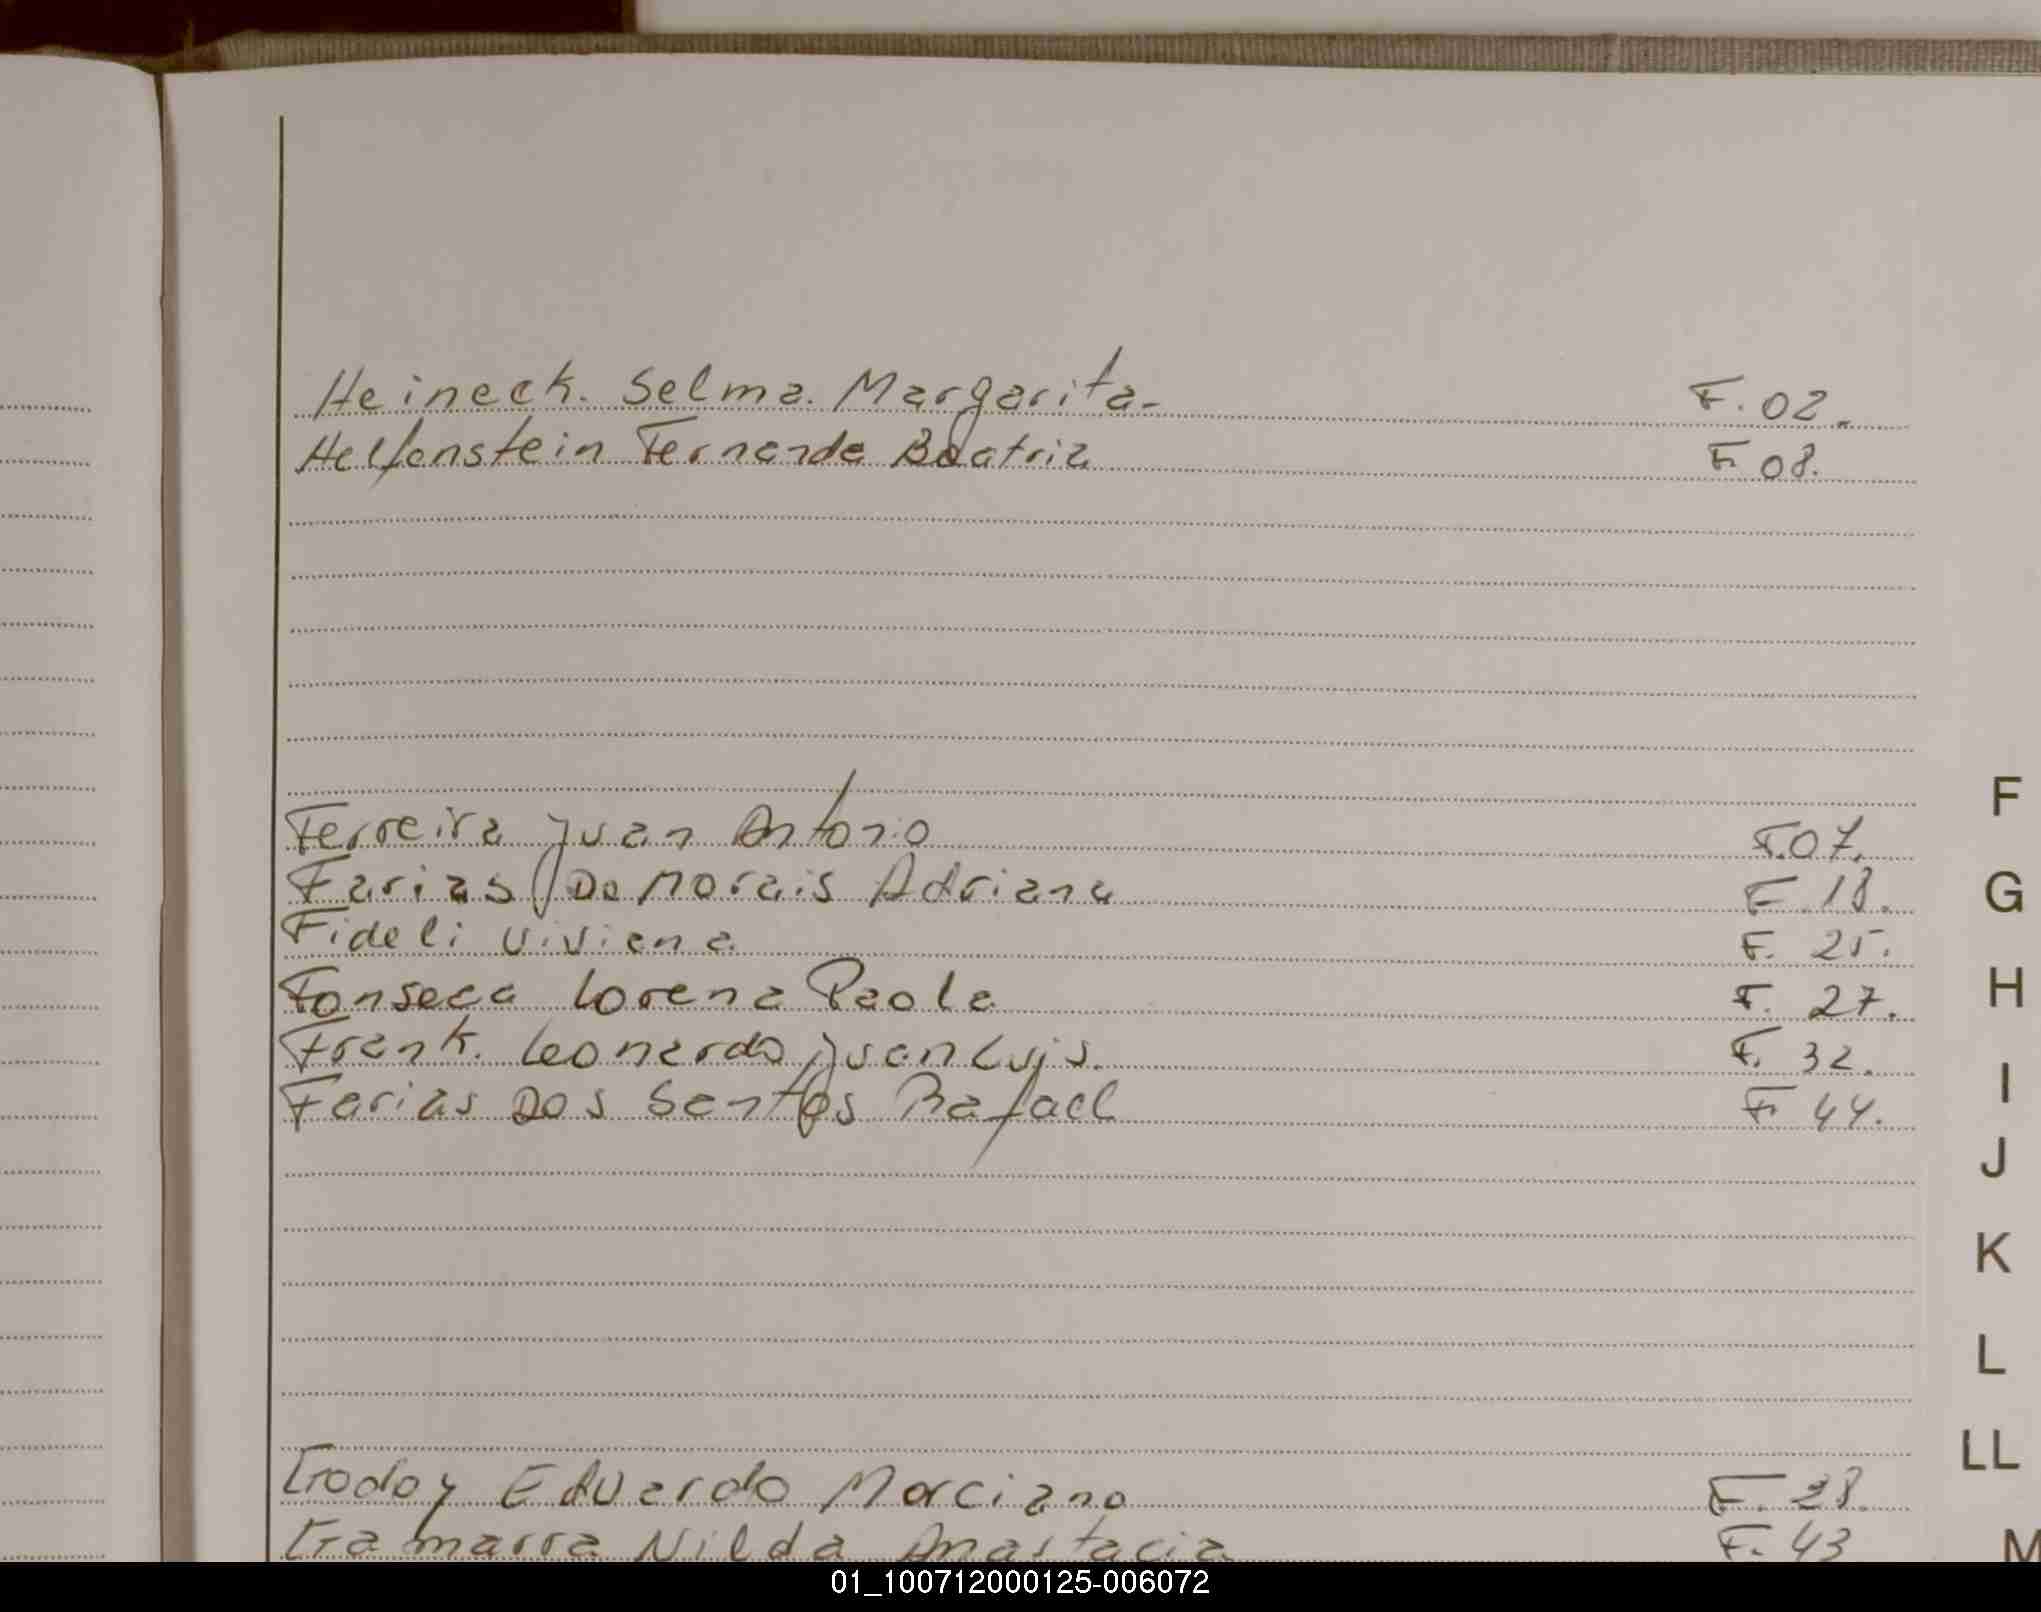 Heineck. Selma. Margarita- F.02.
Helfenstein Fernanda Beatriz F.08.
Ferreira Juan Antonio F.07.
F
Farias De Morais Adriana F.18.
G
Fideli Viviana F. 25.
Fonseca Lorena Paola F. 27.
H
Frank. Leonardo Juan Luis. F. 32.
I
Farias Dos Santos Rafael F 44.
J
K
L
LL
Godoy Eduardo Marciano F. 28.
Gamarra Nilda Anastacia F. 43
M
01_100712000125-006072